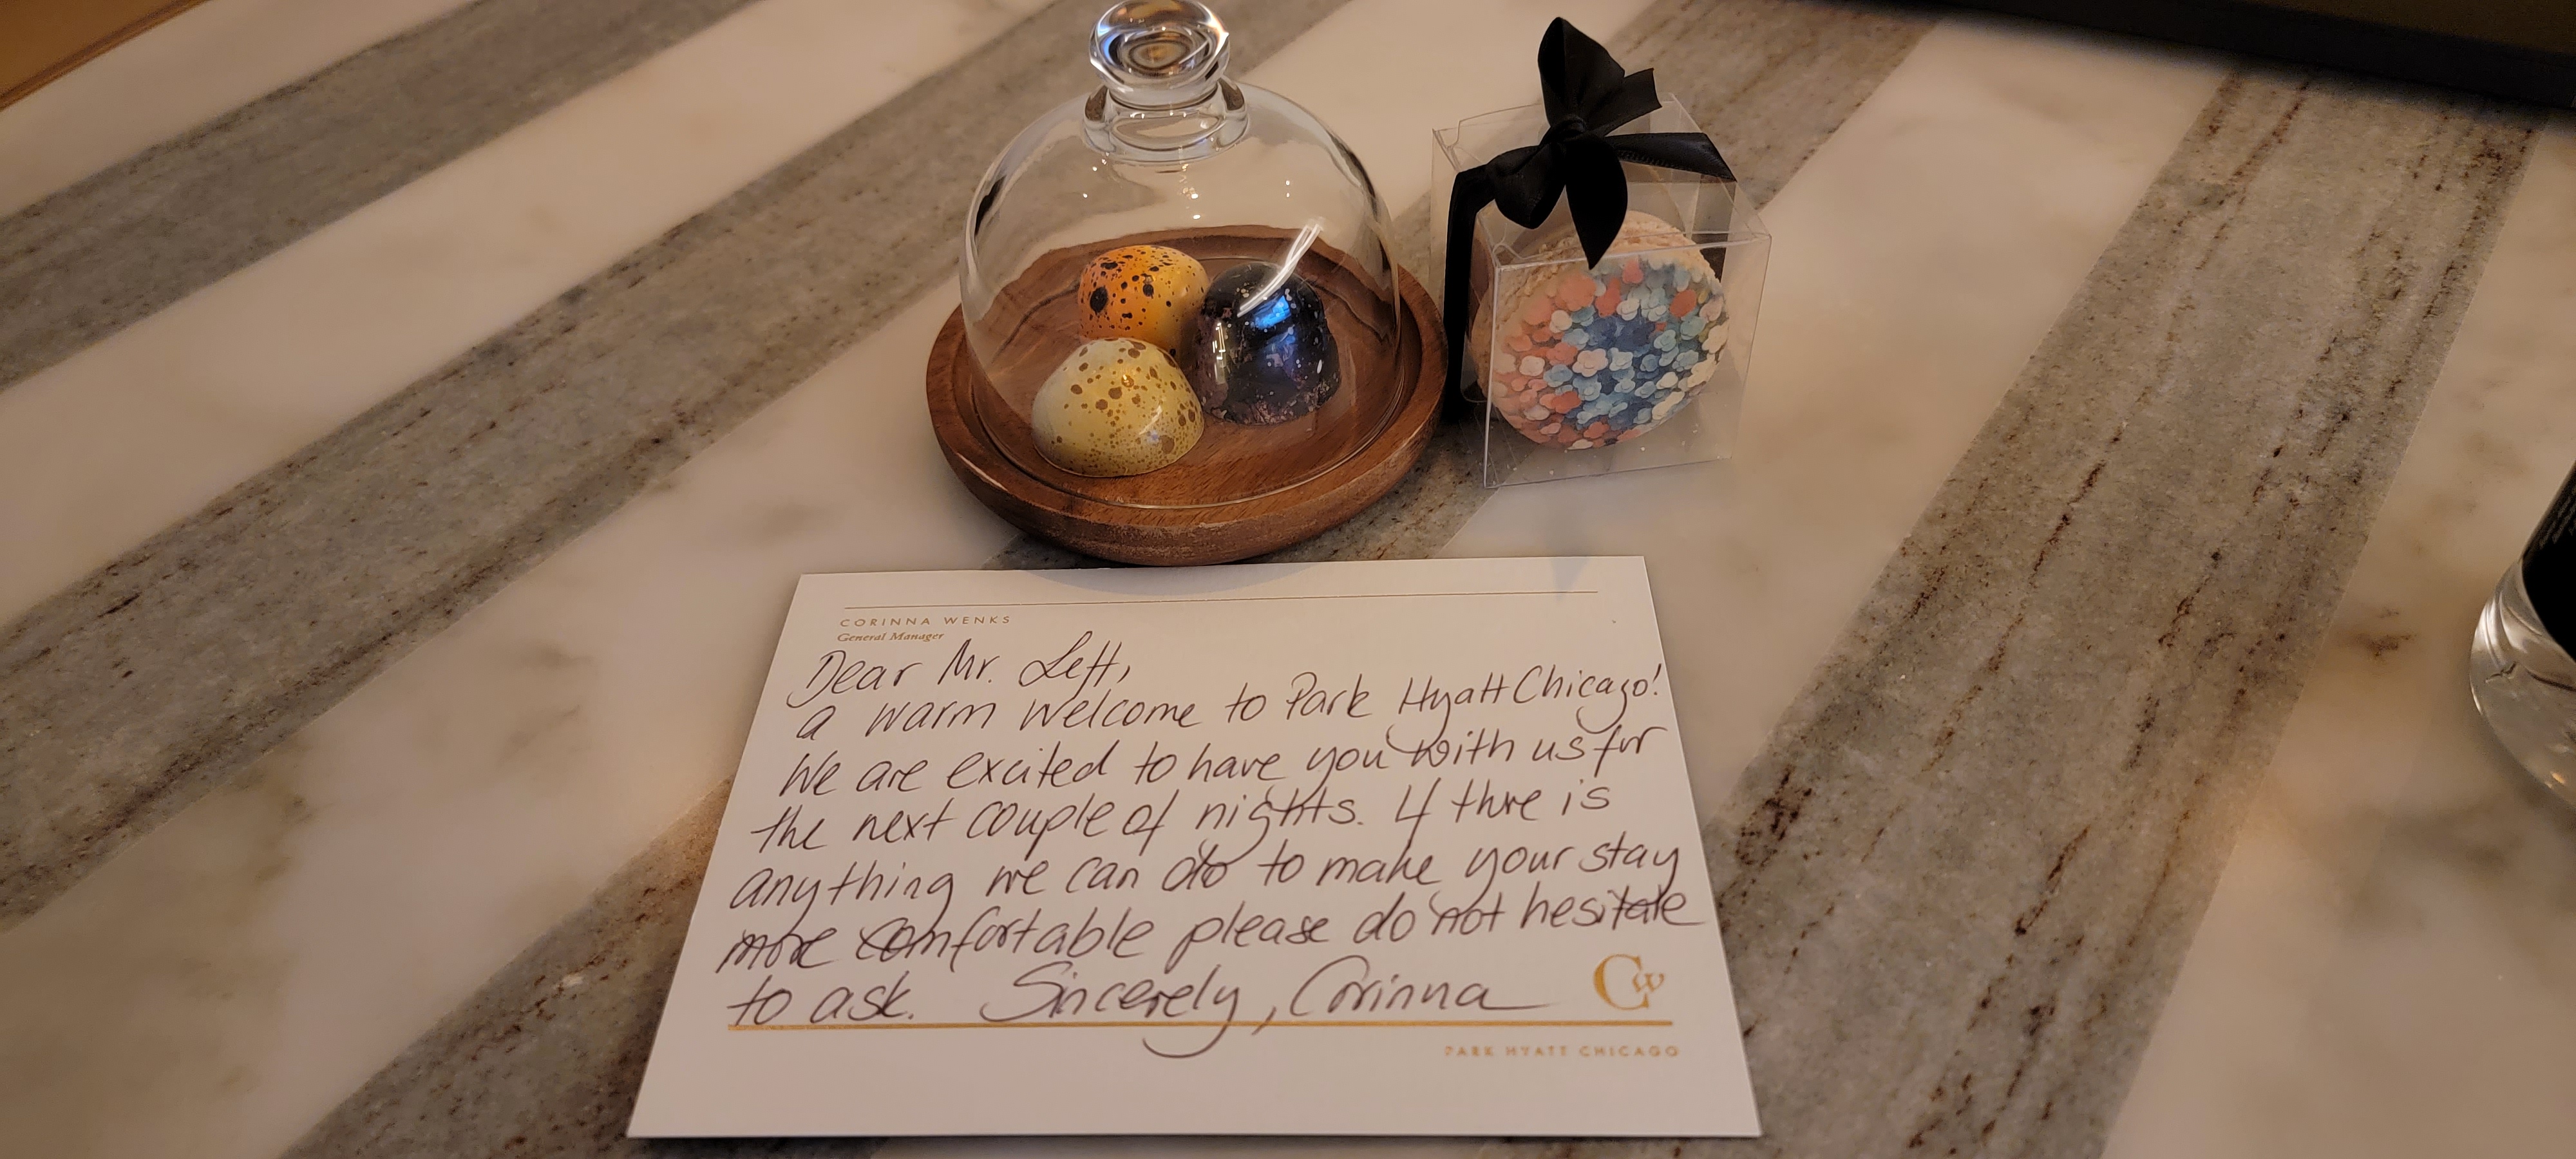 CORINNA WENKS
General Manager
Dear Mr. Lett,
a warm welcome to Park Hyatt Chicago!
We are excited to have you with us for
the next couple of nights. If there is
anything we can do to make your stay
more comfortable please do not hesitate
to ask. Sincerely, Corinna
CW
PARK HYATT CHICAGO